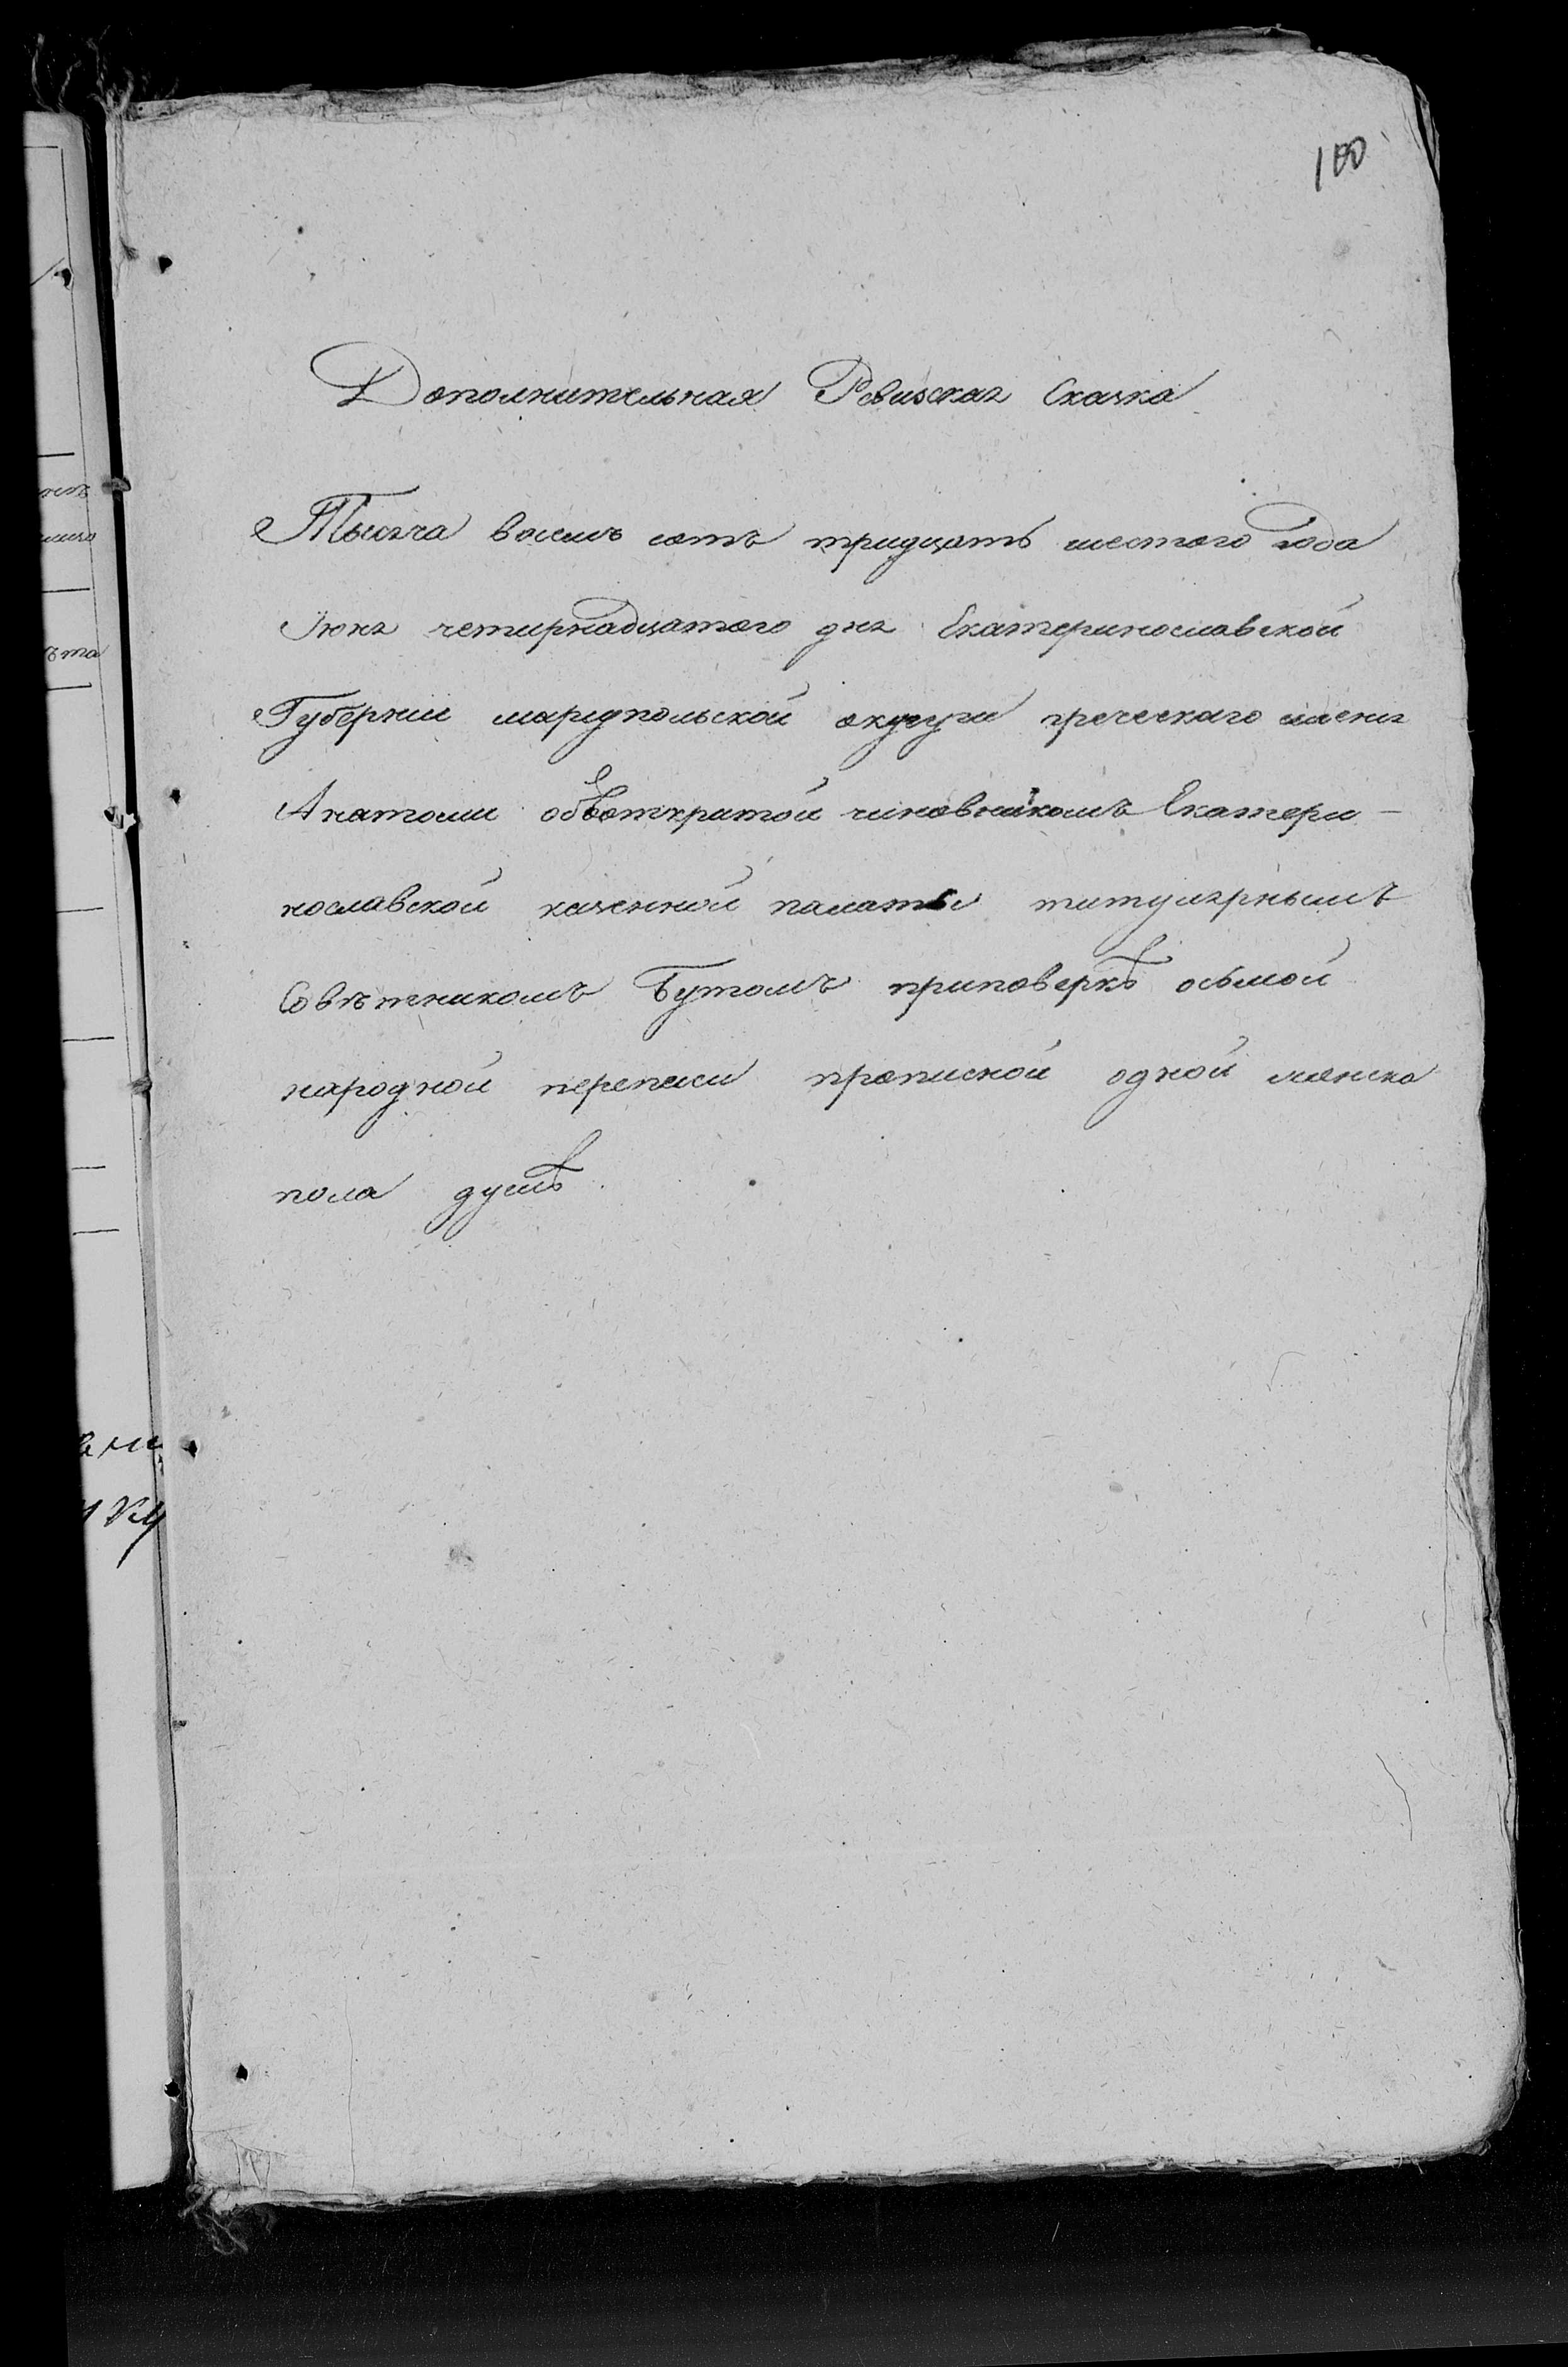 100
Дополнительная Ревизская Сказка
Тысяча восемь сотъ тридцать шестого года
Іюня четирнадцатого дня Екатеринославской
Губерніи маріупольской округи греческаго имения
Анатоли оботкритой чиновникомъ Екатери-
нославской казенной палаты титулярнымъ
Совѣтникомъ Бутомъ приповеркѣ осьмой
народной переписи прописной одной мянска
пола душѣ.